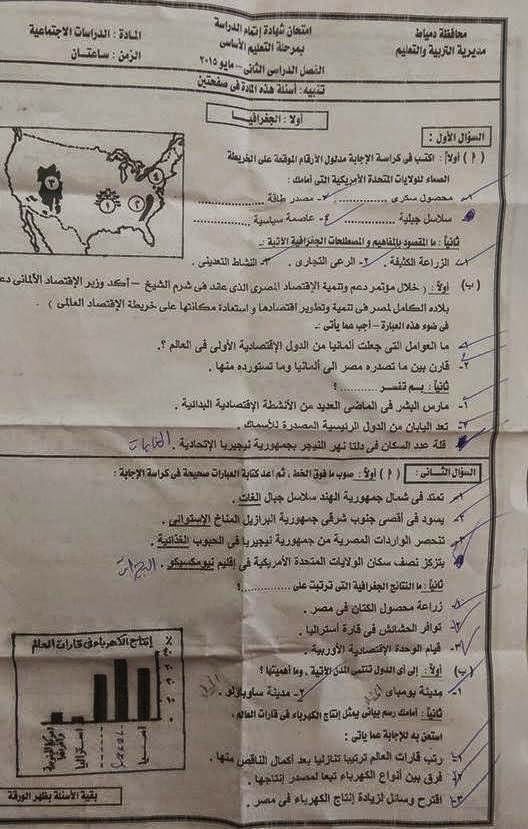 محافظة دمياط
مديرية التربية والتعليم
امتحان شهادة إتمام الدراسة
بمرحلة التعليم الأساسى
الفصل الدراسى الثانى – مايو ٢٠١٥
المادة : الدراسات الاجتماعية
الزمن : ساعتان
تنبيه : أسئلة هذه المادة فى صفحتين
أولا : الجغرافيا
السؤال الأول :
( أ ) أولاً : اكتب فى كراسة الإجابة مدلول الأرقام الموقعة على الخريطة
الصماء للولايات المتحدة الأمريكية التى أمامك :
١- محصول سكرى .............. ٢- مصدر طاقة ..............
٣- سلاسل جبلية .............. ٤- عاصمة سياسية ..............
ثانياً : ما المقصود بالمفاهيم والمصطلحات الجغرافية الآتية :-
١- الزراعة الكثيفة . ٢- الرعى التجارى . ٣- النشاط التعدينى .
(ب) أولاً : ( خلال مؤتمر دعم وتنمية الإقتصاد المصرى الذى عقد فى شرم الشيخ – أكد وزير الإقتصاد الألمانى دعم
بلاده الكامل لمصر فى تنمية وتطوير اقتصادها و استعادة مكانتها على خريطة الإقتصاد العالمى ) .
فى ضوء هذه العبارة – أجب عما يأتى :
١- ما العوامل التى جعلت ألمانيا من الدول الإقتصادية الأولى فى العالم ؟.
٢- قارن بين ما تصدره مصر إلى ألمانيا وما تستورده منها .
ثانياً : بم تفسر ............ ؟
١- مارس البشر فى الماضى العديد من الأنشطة الإقتصادية البدائية .
٢- تعد اليابان من الدول الرئيسية المصدرة للأسماك .
٣- قلة عدد السكان فى دلتا نهر النيجر بجمهورية نيجيريا الإتحادية . الغابات
السؤال الثانى : ( أ ) أولاً : صوب ما فوق الخط , ثم اعد كتابة العبارات صحيحة فى كراسة الإجابة :
١- تمتد فى شمال جمهورية الهند سلاسل جبال الغات .
٢- يسود فى أقصى جنوب شرقى جمهورية البرازيل المناخ الإستوائى .
٣- تنحصر الواردات المصرية من جمهورية نيجيريا فى الحبوب الغذائية .
٤- يتركز نصف سكان الولايات المتحدة الأمريكية فى إقليم نيومكسيكو . البحيرات
ثانياً : ما النتائج الجغرافية التى ترتبت على .......... ؟
١- زراعة محصول الكتان فى مصر .
٢- توافر الحشائش فى قارة أستراليا .
٣- قيام الوحدة الإقتصادية الأوربية .
(ب) أولاً : إلى أى الدول تنتمى المدن الآتية , وما أهميتها ؟
١- مدينة بومباى . ٢- مدينة ساوباولو .
ثانياً : أمامك رسم بيانى يمثل إنتاج الكهرباء فى قارات العالم ,
استعن به للإجابة عما يأتى :
١- رتب قارات العالم ترتيبا تنازليا بعد أكمال الناقص منها .
٢- فرق بين أنواع الكهرباء تبعا لمصدر إنتاجها .
٣- اقترح وسائل لزيادة إنتاج الكهرباء فى مصر .
إنتاج الكهرباء فى قارات العالم
%
بقية الأسئلة بظهر الورقة